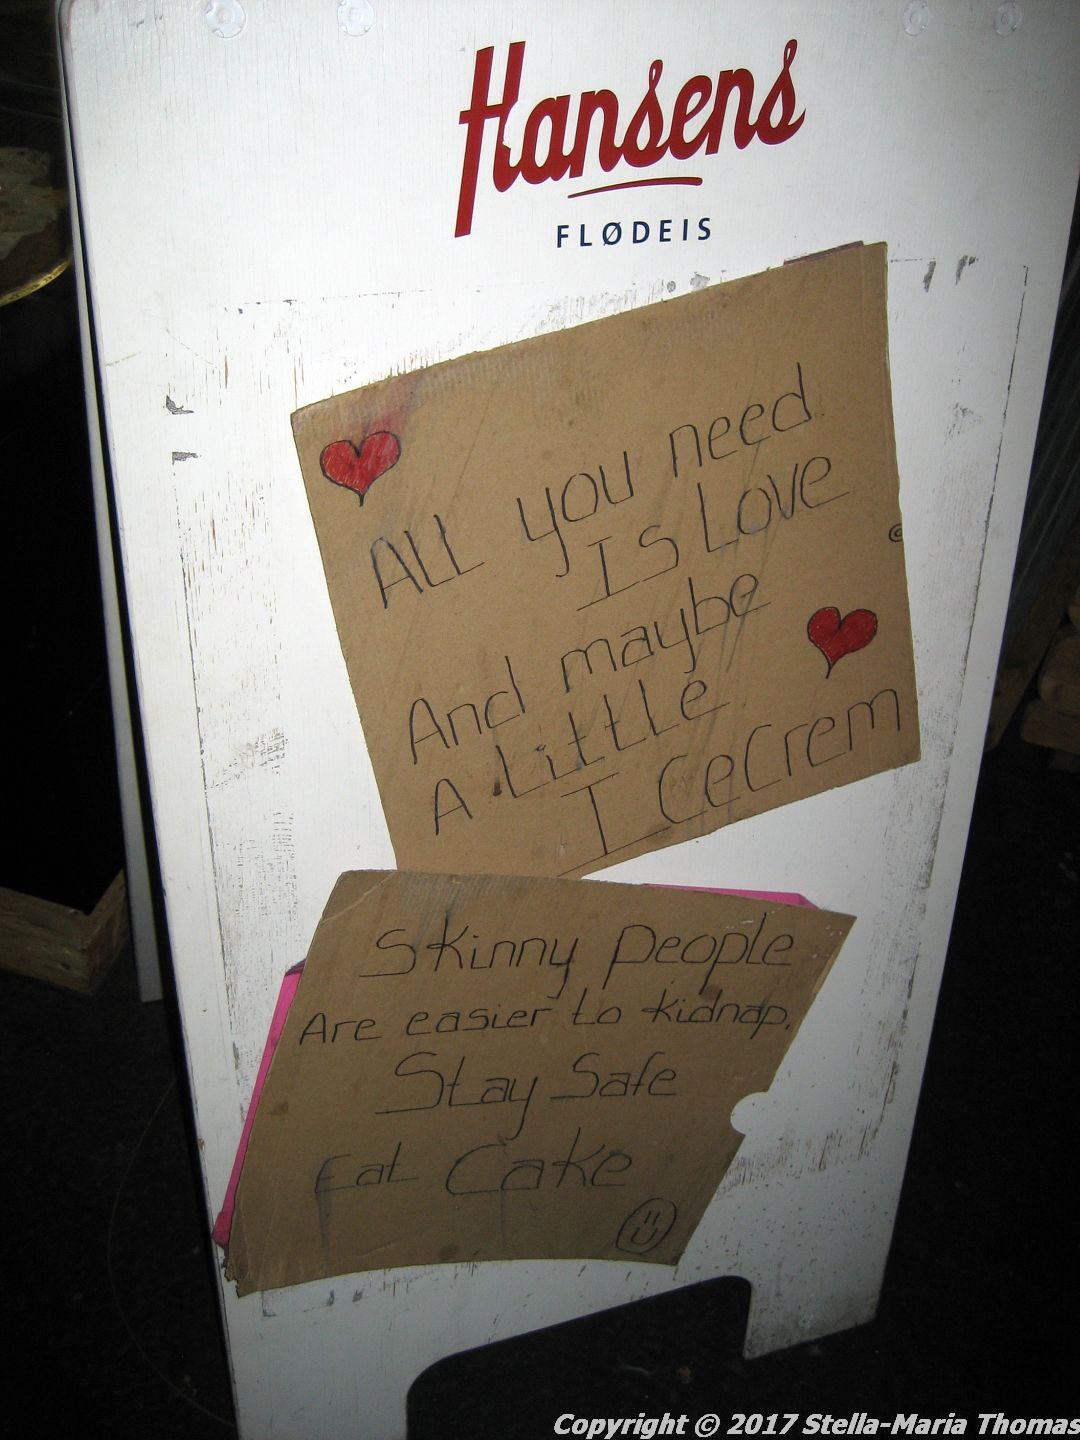 Hansens
FLØDEIS
ALL you need
IS Love
And maybe
A Little
ICeCrem
Skinny people
Are easier to kidnap.
Stay Safe
Eat Cake
Copyright © 2017 Stella-Maria Thomas